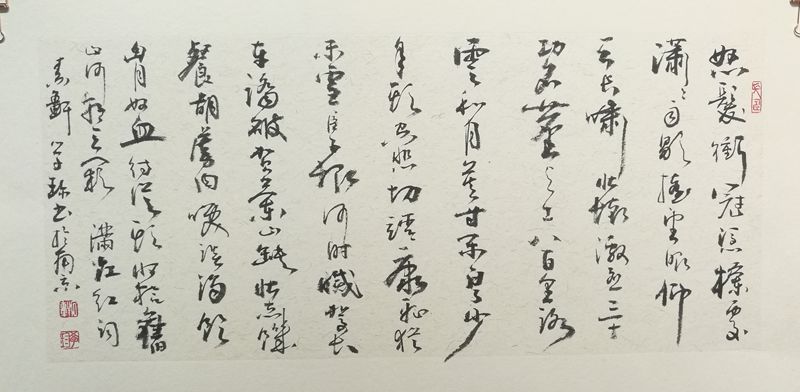 怒髮衝冠憑欄處
瀟瀟雨歇抬望眼仰
天長嘯壯懷激烈三十
功名塵與土八百里路
雲和月莫等閒白了少
年頭空悲切靖康恥猶
未雪臣子恨何時滅駕長
車踏破賀蘭山缺壯志饑
餐胡虜肉笑談渴飲
匈奴血待從頭收拾舊
山河朝天闕 滿江紅詞
軒 書於南京